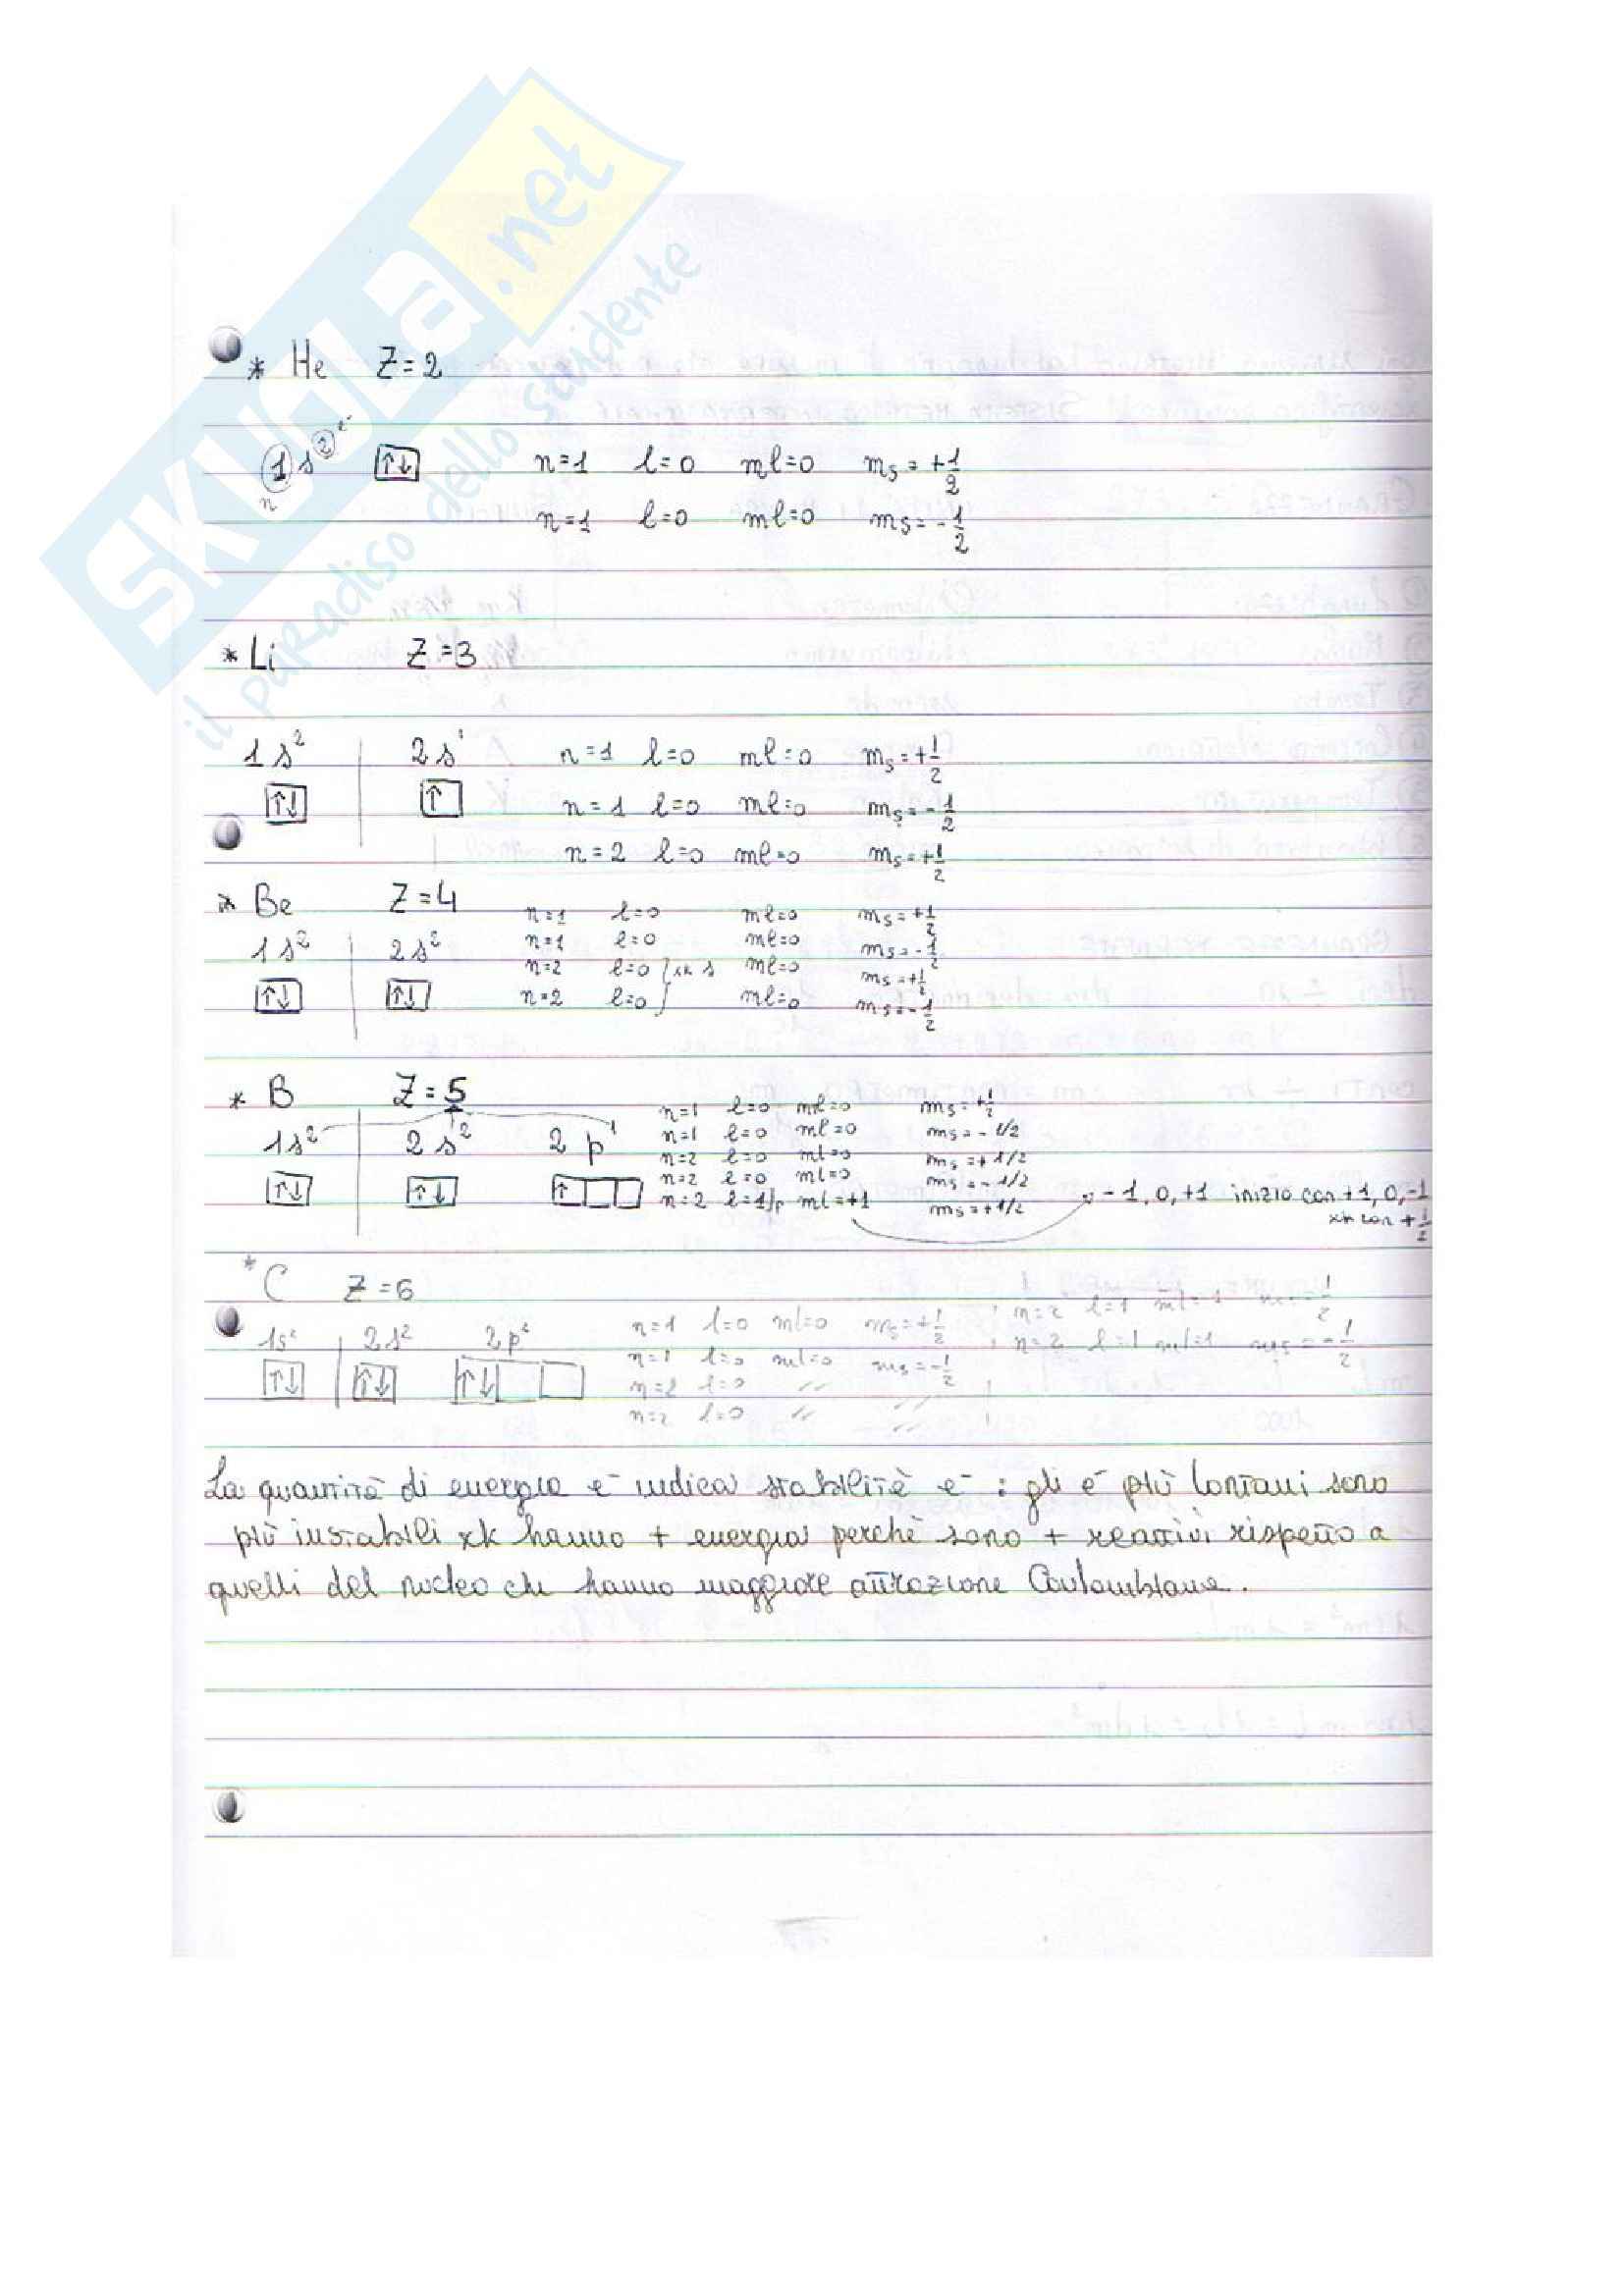 SKUOLa.net
il paradiso dello studente
* He Z=2
1s² e⁻ ↑↓ n=1 l=0 ml=0 ms=+1/2
n
n=1 l=0 ml=0 ms=-1/2
* Li Z=3
1s² 2s¹ n=1 l=0 ml=0 ms=+1/2
↑↓ ↑ n=1 l=0 ml=0 ms=-1/2
n=2 l=0 ml=0 ms=+1/2
* Be Z=4
n=1 l=0 ml=0 ms=+1/2
1s² 2s² n=1 l=0 ml=0 ms=-1/2
n=2 l=0 } xk s ml=0 ms=+1/2
↑↓ ↑↓ n=2 l=0 ml=0 ms=-1/2
* B Z=5
n=1 l=0 ml=0 ms=+1/2
1s² 2s² 2p¹ n=1 l=0 ml=0 ms=-1/2
n=2 l=0 ml=0 ms=+1/2
n=2 l=0 ml=0 ms=-1/2
↑↓ ↑↓ ↑ n=2 l=1/p ml=+1 ms=+1/2 -1, 0, +1 inizio con +1, 0, -1
xk con +1/2
* C Z=6
1s² 2s² 2p² n=1 l=0 ml=0 ms=+1/2 n=2 l=1 ml=1 ms=1/2
n=1 l=0 ml=0 ms=-1/2 n=2 l=1 ml=1 ms=-1/2
↑↓ ↑↓ ↑↓ n=2 l=0 // //
n=2 l=0 // //
La quantità di energia e⁻ indica stabilità e⁻: gli e⁻ più lontani sono
più instabili xk hanno + energia perchè sono + reattivi rispetto a
quelli del nucleo che hanno maggiore attrazione Coulombiana.